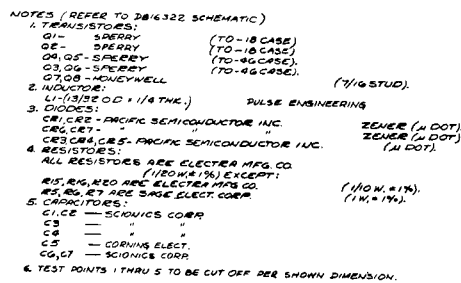 NOTES (REFER TO DB16322 SCHEMATIC)
1. TRANSISTORS:
Q1- SPERRY (TO-18 CASE)
Q2- SPERRY (TO-18 CASE)
Q4, Q5-SPERRY (TO-46 CASE).
Q3, Q6-SPERRY (TO-46 CASE).
Q7, Q8-HONEYWELL (7/16 STUD).
2. INDUCTOR:
L1-(13/32 O.D. × 1/4 THK.) PULSE ENGINEERING
3. DIODES:
CR1, CR2 - PACIFIC SEMICONDUCTOR INC. ZENER (µ DOT)
CR6, CR7 - " " " ZENER (µ DOT)
CR3, CR4, CR5- PACIFIC SEMICONDUCTOR INC. (µ DOT).
4. RESISTORS:
ALL RESISTORS ARE ELECTRA MFG. CO.
(1/20 W, ±1%) EXCEPT:
R15, R16, R20 ARE ELECTRA MFG CO. (1/10 W, ±1%).
R5, R6, R7 ARE SAGE ELECT. CORP. (1W, ±1%).
5. CAPACITORS:
C1, C2 — SCIONICS CORP.
C3 — " "
C4 — " "
C5 — CORNING ELECT.
C6, C7 — SCIONICS CORP.
6. TEST POINTS 1 THRU 5 TO BE CUT OFF PER SHOWN DIMENSION.